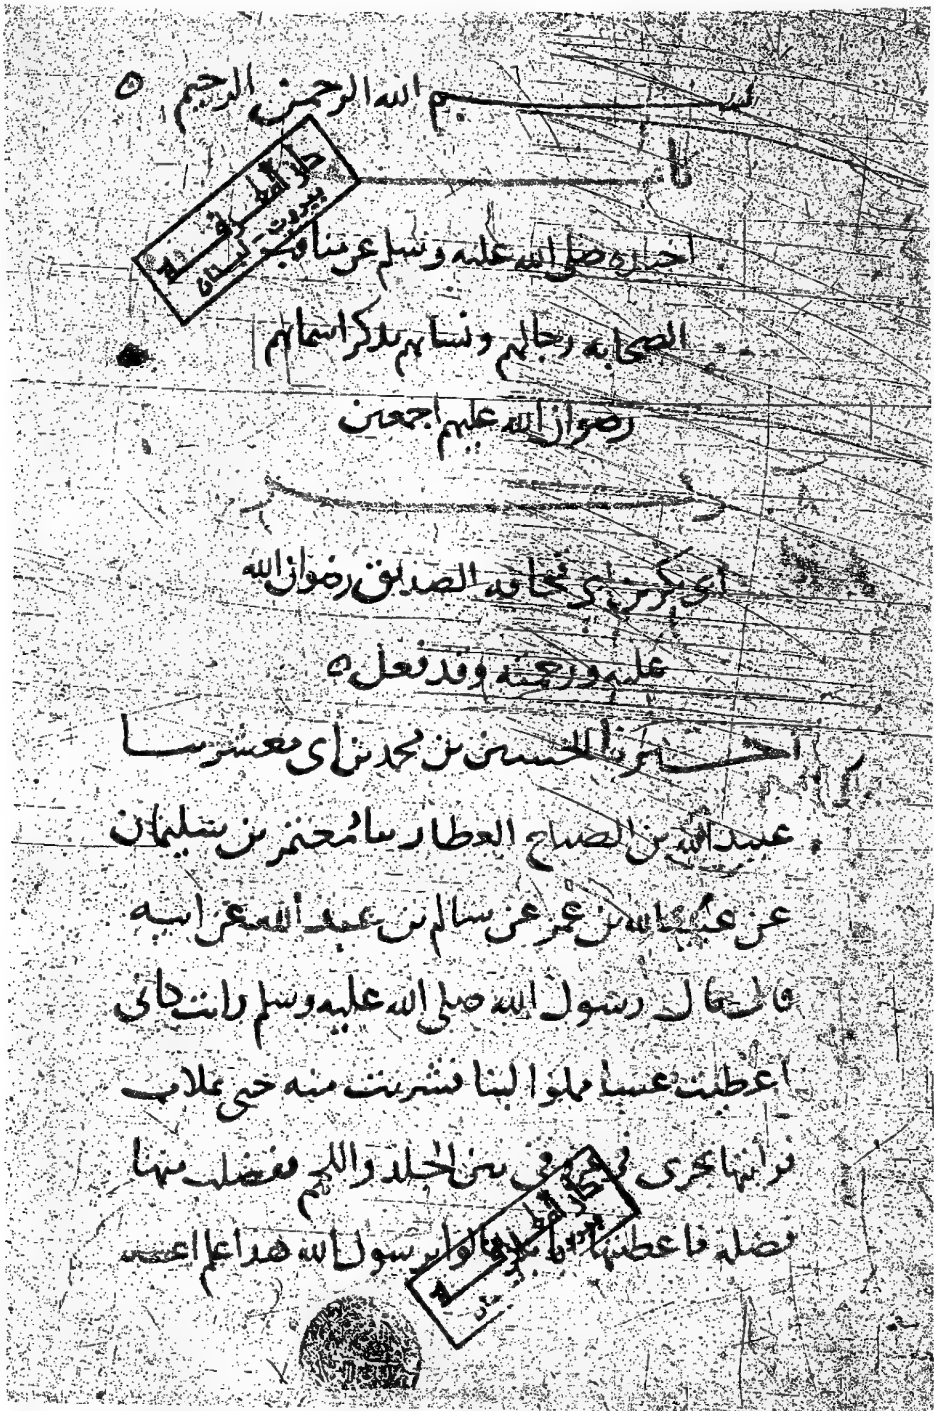 بسم الله الرحمن الرحيم ه
اخباره صلى الله عليه وسلم عن مناقب
الصحابه رجالهم ونسايهم بذكر اسمايهم
رضوان الله عليهم اجمعين
ابي بكر بن ابي قحافه الصديق رضوان الله
عليه ورحمته وقد فعل ه
اخبرنا الحسين بن محمد بن ابي معشر ثنا
عبد الله بن الصباح العطار ثنا معتمر بن سليمان
عن عبيد الله بن عمر عن سالم بن عبد الله عن ابيه
قال قال رسول الله صلى الله عليه وسلم رايت كاني
اعطيت عسا مملوا لبنا فشربت منه حتى تملات
فرايتها تجري في عروقي بين الجلد واللحم ففضلت منها
فضله فاعطيتها ابا بكر قالوا يرسول الله هذا علم
دار الفكر
بيروت - لبنان